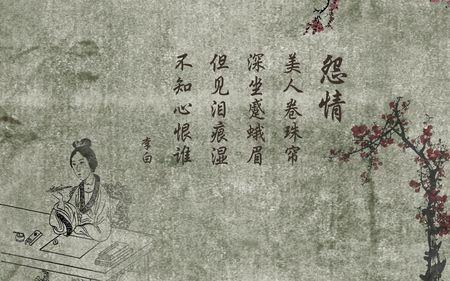 怨情
美人卷珠帘
深坐蹙蛾眉
但见泪痕湿
不知心恨谁
李白